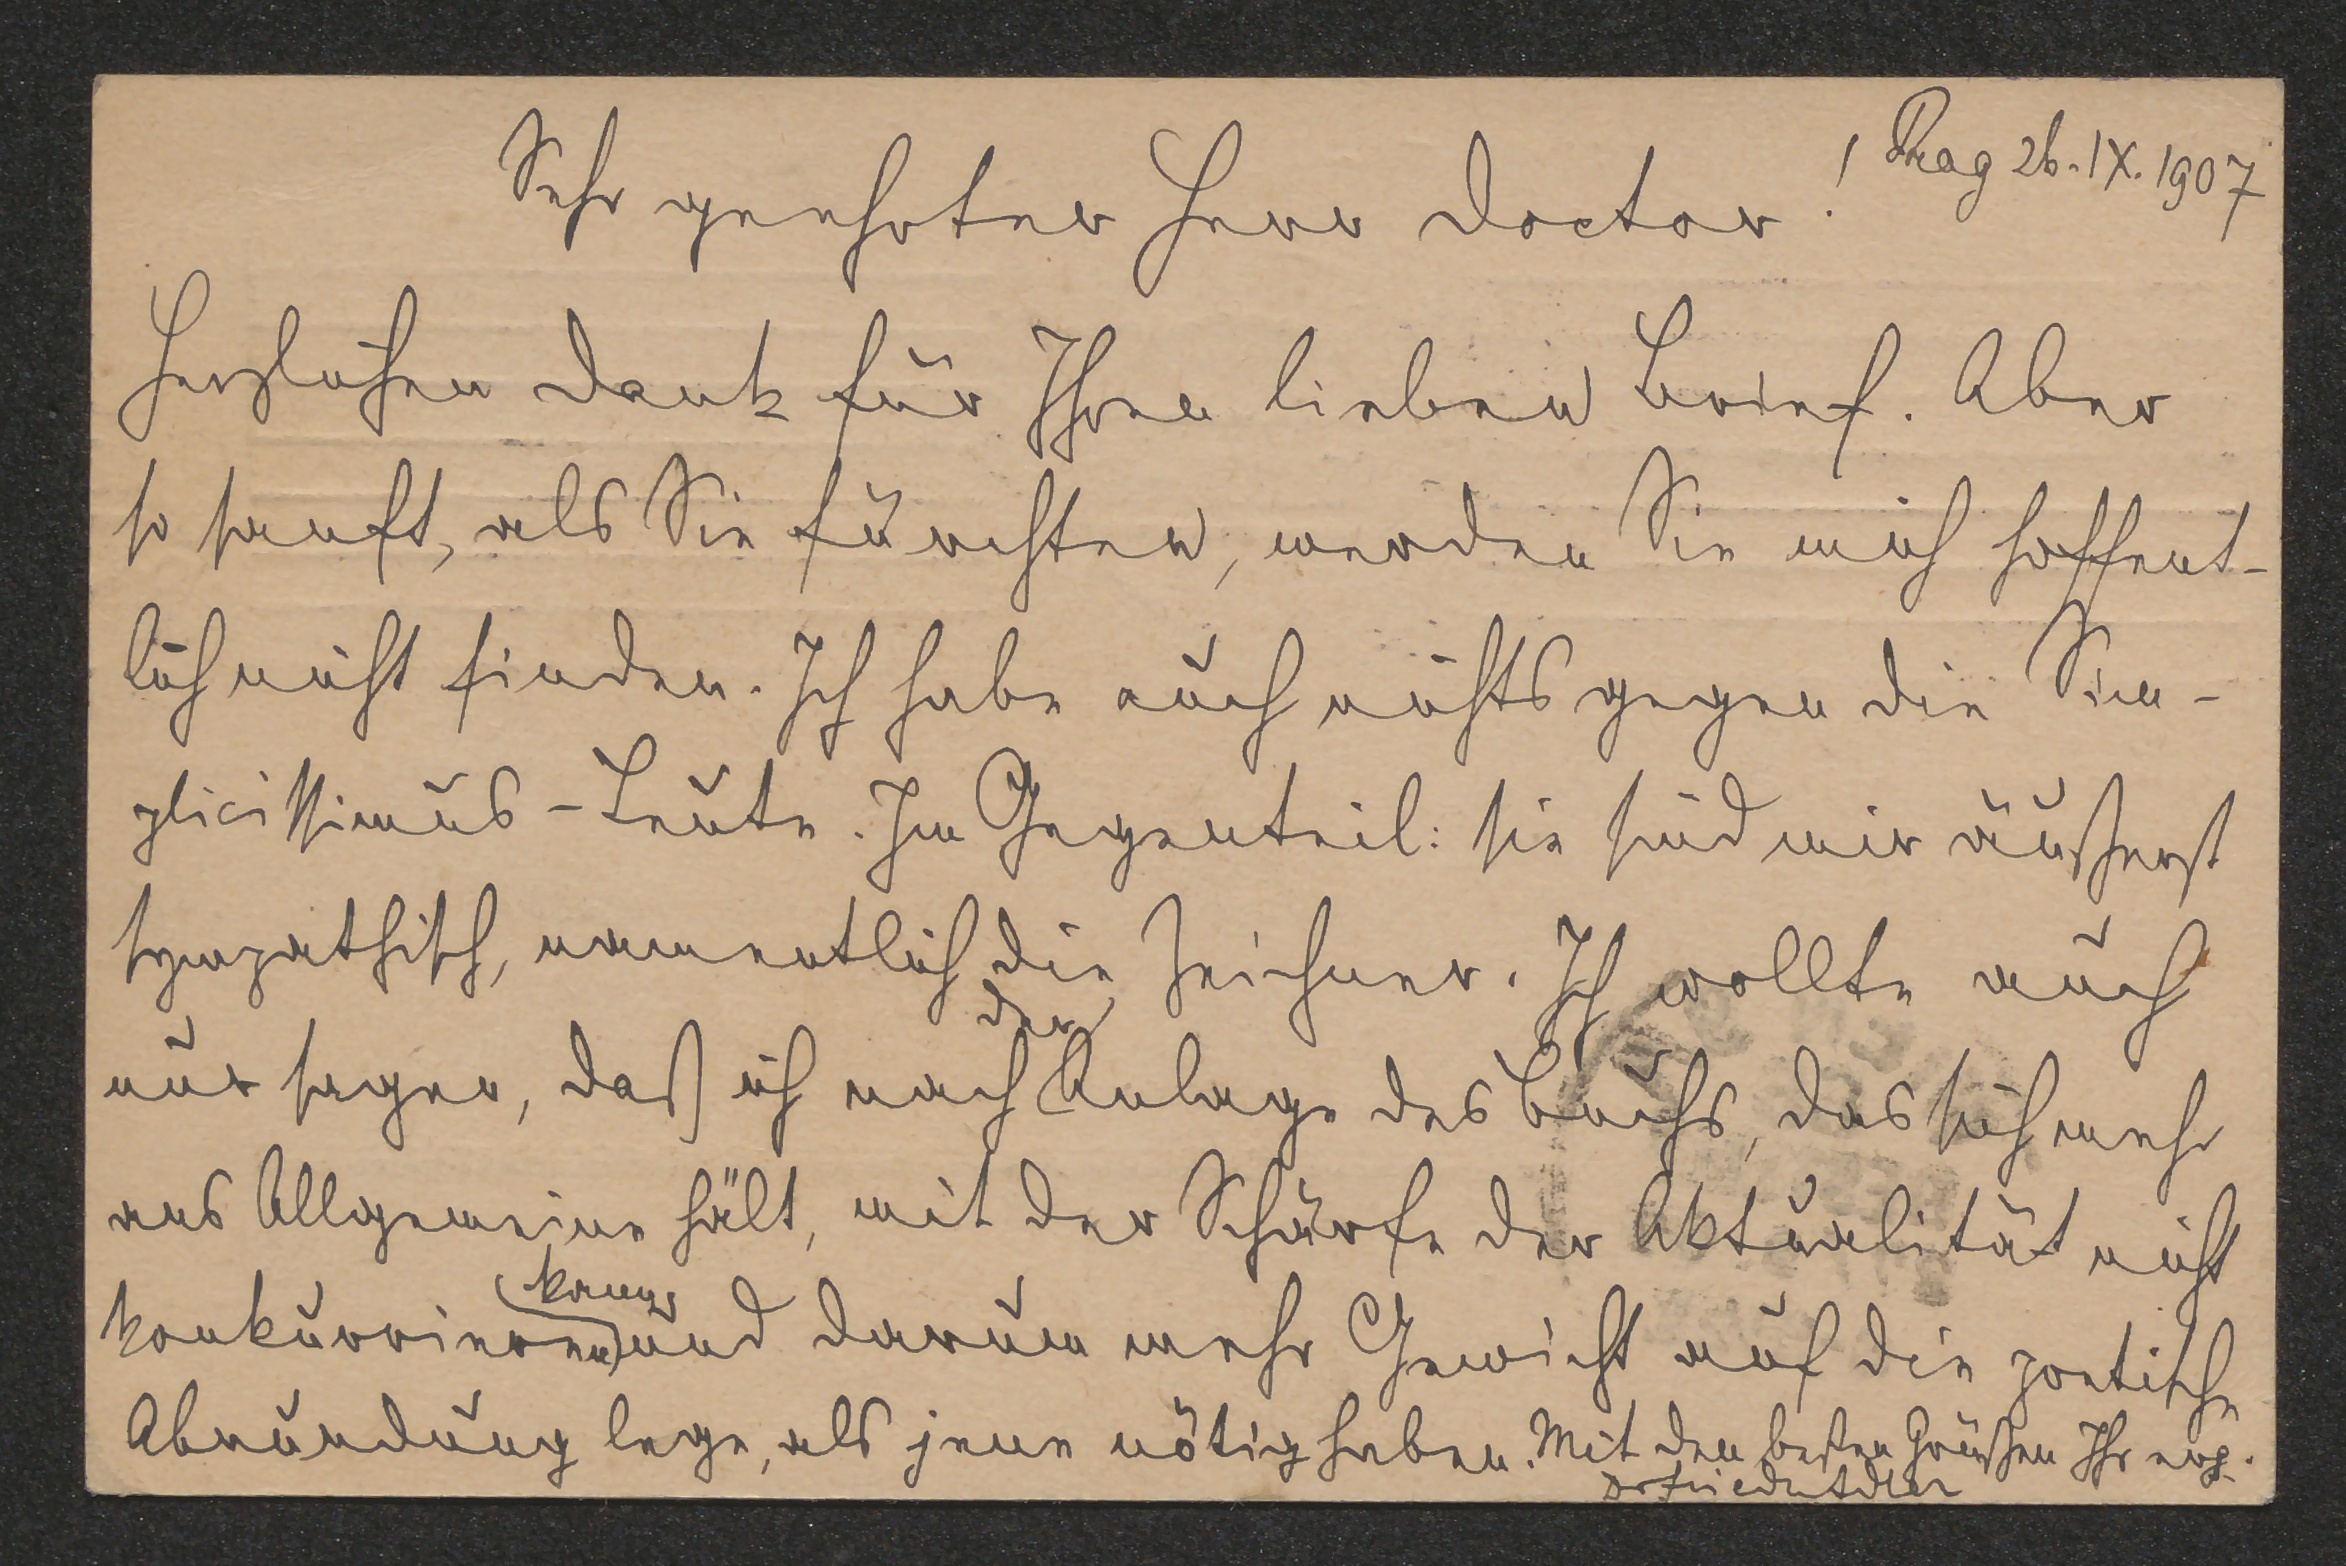 Prag 26.IX.1907
Sehr geehrter Herr Doctor!
Herzlichen Dank für Ihren lieben Brief. Aber
so sanft, als Sie fürchten, werden Sie mich hoffent-
lich nicht finden. Ich habe auch nichts gegen die Sim-
plicissimus-Leute. Im Gegenteil: sie sind mir äußerst
sympathisch, namentlich die Zeichner. Ich wollte auch
der
nur sagen, daß ich nach Anlage des Buchs, das sich mehr
ans Allgemeine hält, mit der Schärfe der Aktualität nicht
kann
konkurrieren und darum mehr Gewicht auf die poetische
Abrundung lege, als jene nötig haben. Mit den besten Grüßen Ihr erg.
Dr Friedr Adler